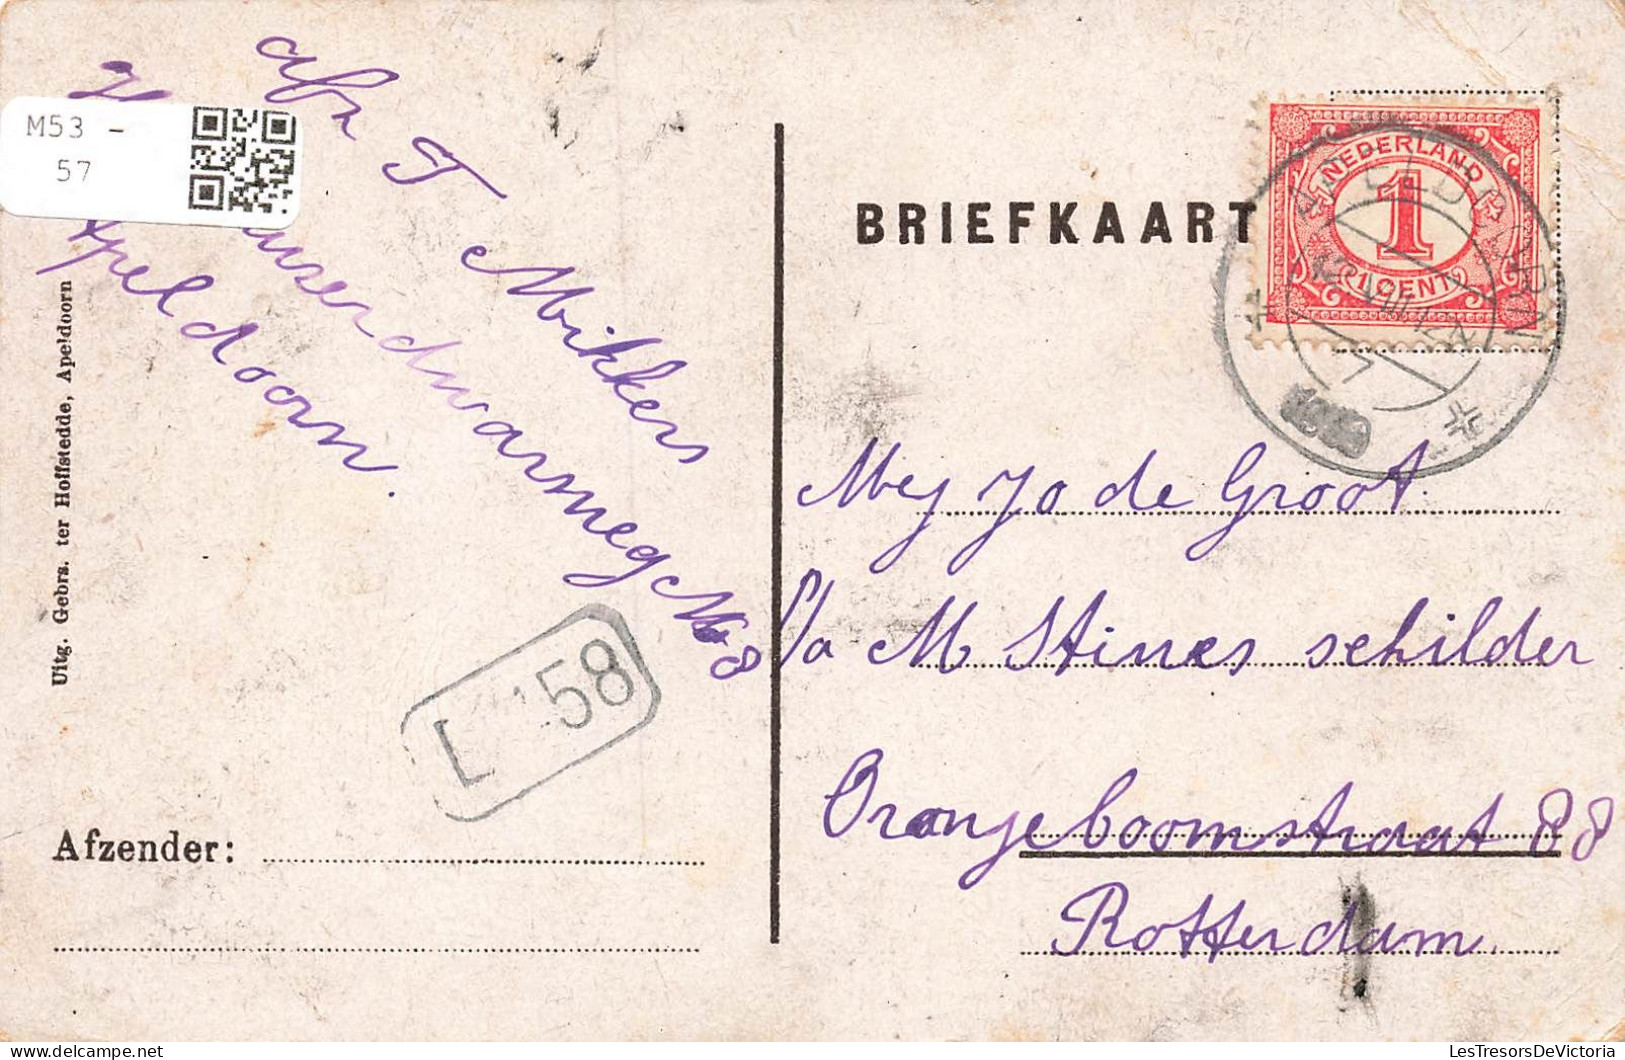 M53 -
57
afz T Mikkers
dwarsweg No 8
Apeldoorn.
Uitg. Gebrs. ter Hoffstedde, Apeldoorn
L 58
Afzender:
BRIEFKAART
NEDERLAND
1
1 CENT
APELDOORN
Mej Jo de Groot.
p/a M Stines schilder
Oranjeboomstraat 88
Rotterdam.
LesTresorsDeVictoria.com